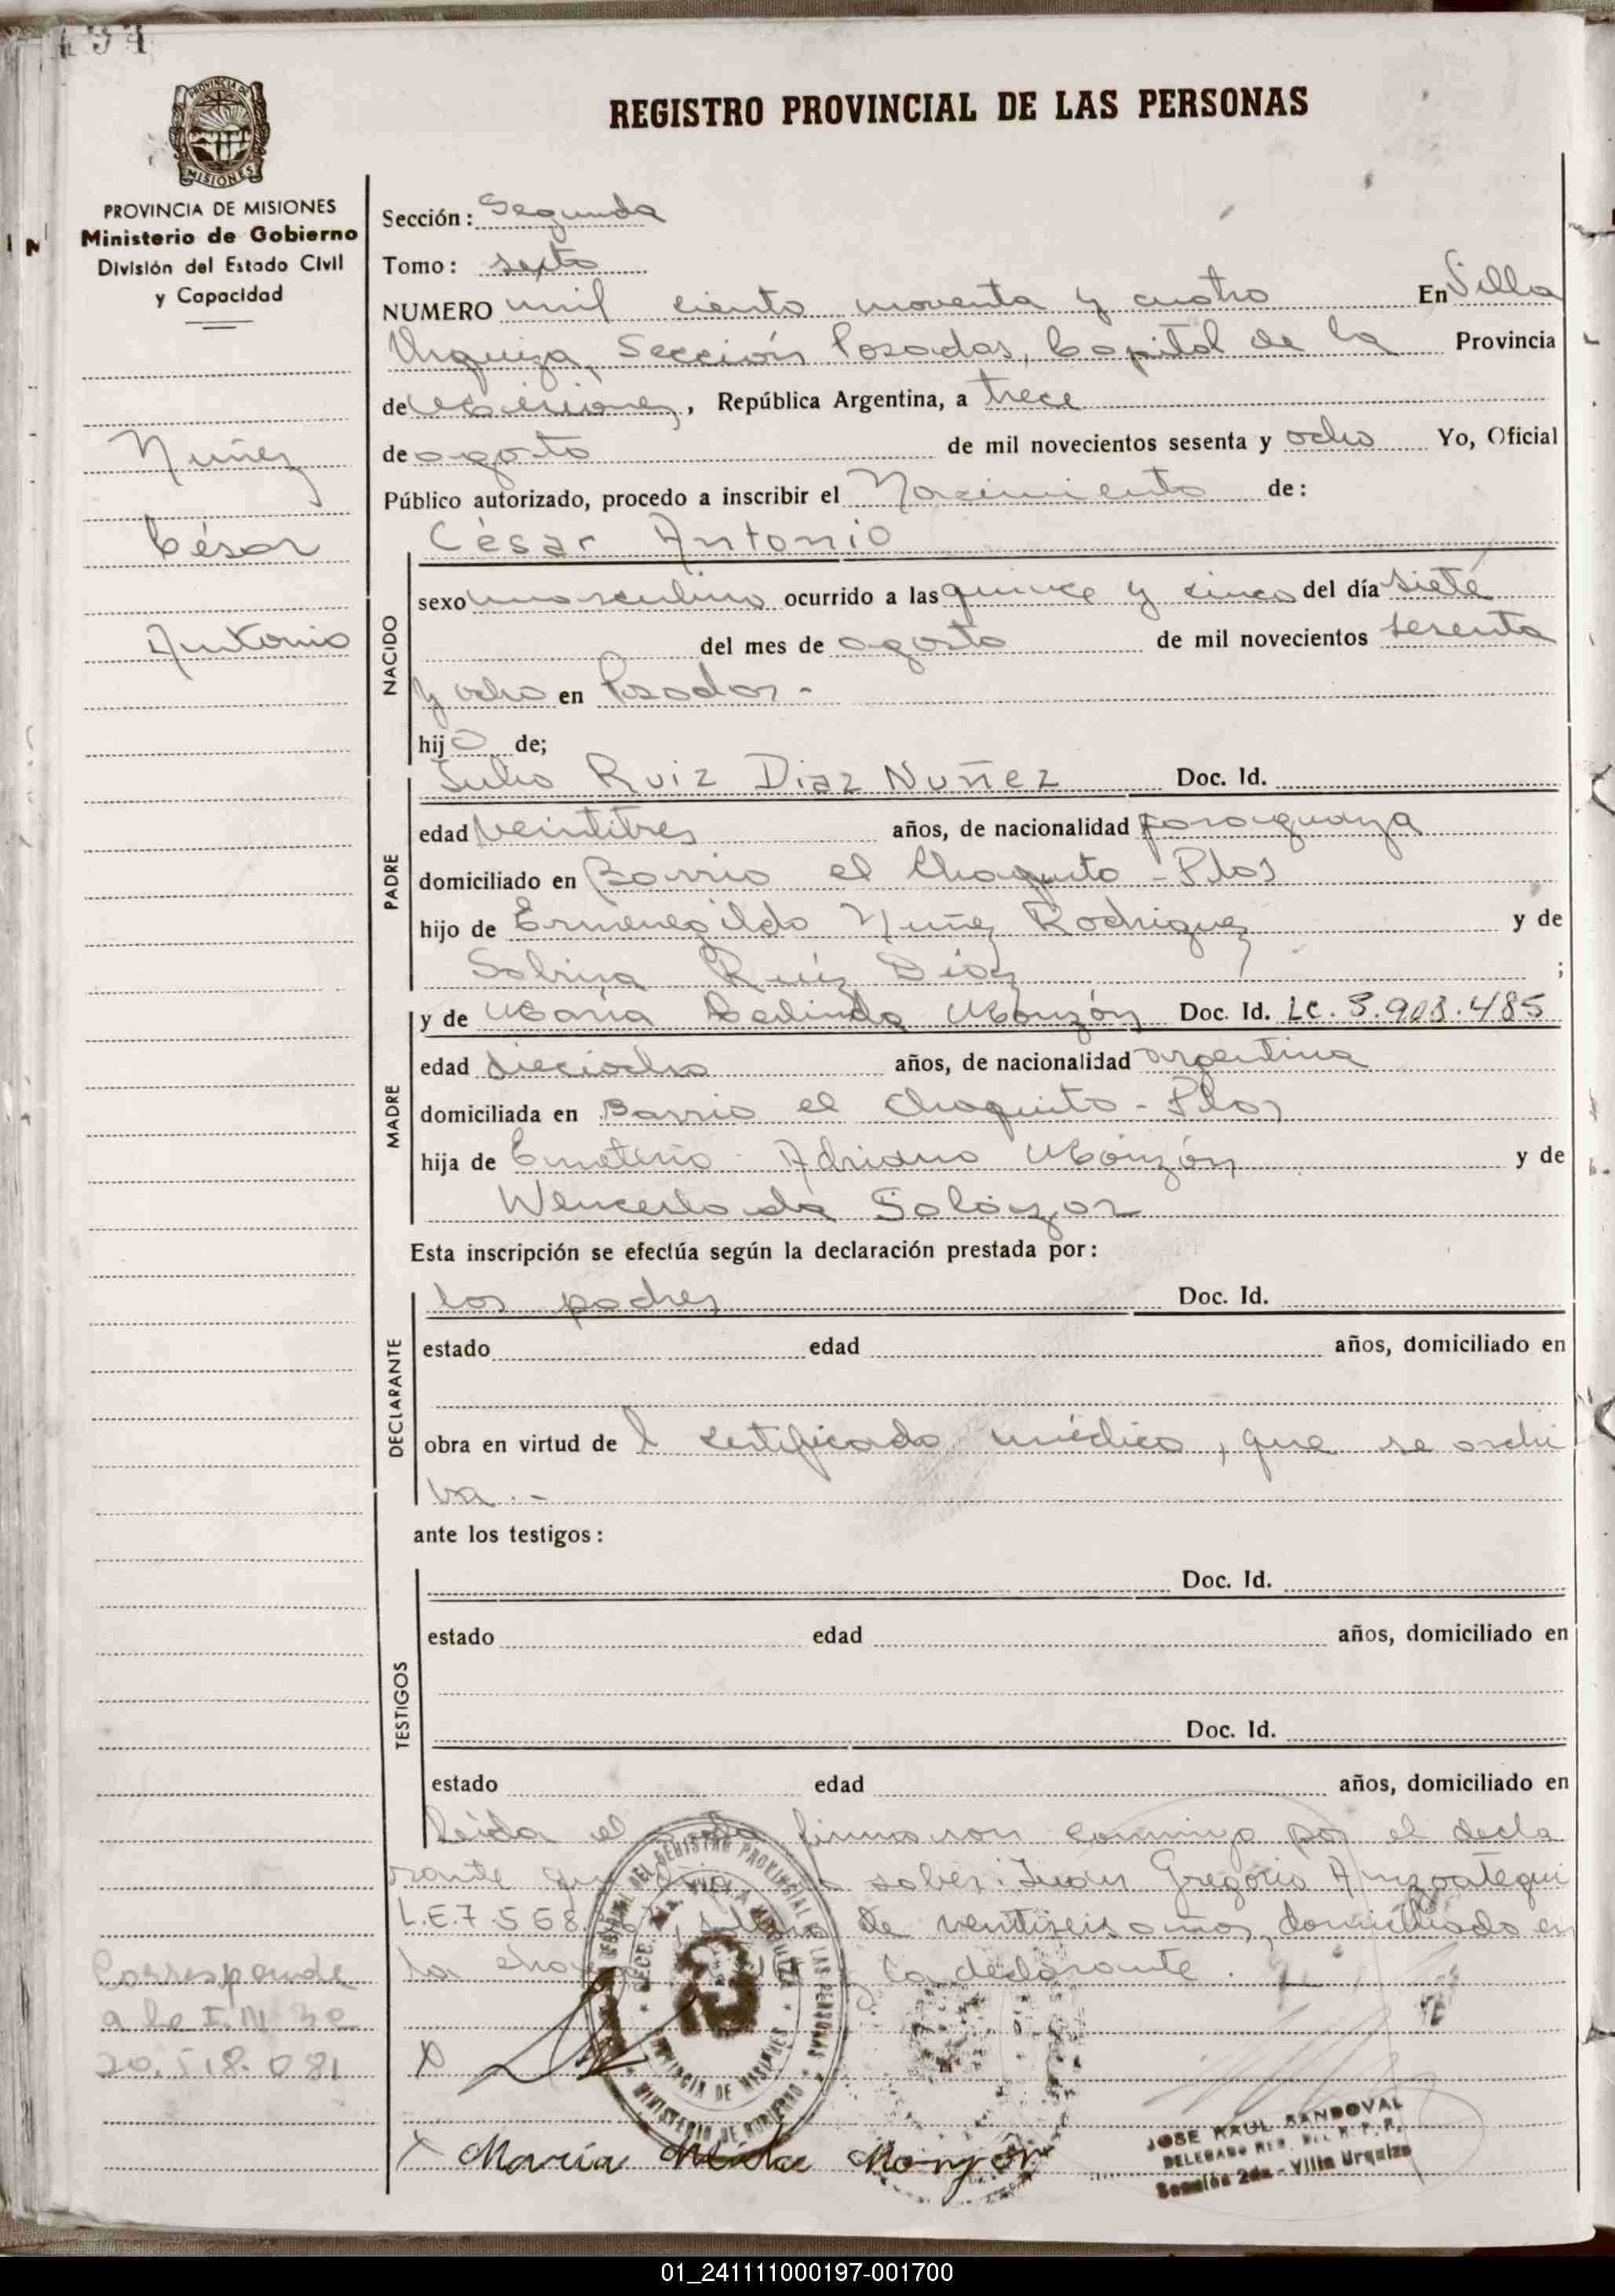 194
REGISTRO PROVINCIAL DE LAS PERSONAS
PROVINCIA DE
MISIONES
PROVINCIA DE MISIONES
Ministerio de Gobierno
División del Estado Civil
y Capacidad
Nuñez
César
Antonio
Sección: Segunda
Tomo: sexto
NUMERO mil ciento noventa y cuatro En Villa
Urquiza, Sección Posadas, Capital de la Provincia
de Misiones, República Argentina, a trece
de agosto de mil novecientos sesenta y ocho Yo, Oficial
Público autorizado, procedo a inscribir el Nacimiento de:
César Antonio
NACIDO
sexo masculino ocurrido a las quince y cinco del día siete
del mes de agosto de mil novecientos sesenta
y ocho en Posadas.-
hijo de;
PADRE
Julio Ruiz Diaz Nuñez Doc. Id.
edad veintitres años, de nacionalidad paraguaya
domiciliado en Barrio el Chaquito - Pdas
hijo de Ermenegildo Nuñez Rodriguez y de
Sabina Ruíz Díaz ;
MADRE
y de María Monzón Doc. Id. LC. 5.908.485
edad dieciocho años, de nacionalidad argentina
domiciliada en Barrio el Chaquito - Pdas
hija de Emeterio Adriano Monzón y de
Salazar
Esta inscripción se efectúa según la declaración prestada por:
DECLARANTE
los padres Doc. Id.
estado edad años, domiciliado en
obra en virtud del certificado médico, que se archi
va.-
ante los testigos:
TESTIGOS
Doc. Id.
estado edad años, domiciliado en
Doc. Id.
estado edad años, domiciliado en
Leída el acta firmaron conmigo por el decla
rante que saber: Juan Gregorio Anzoategui
L.E.7.568. de veintiseis años, domiciliado en
la y la declarante.
Corresponde
a la
20.518.081
X
X María Monzón
REGISTRO PROVINCIAL DE LAS PERSONAS
PROVINCIA DE MISIONES
MINISTERIO DE GOBIERNO
JOSE RAUL SANDOVAL
Sección 2da - Villa Urquiza
01_241111000197-001700